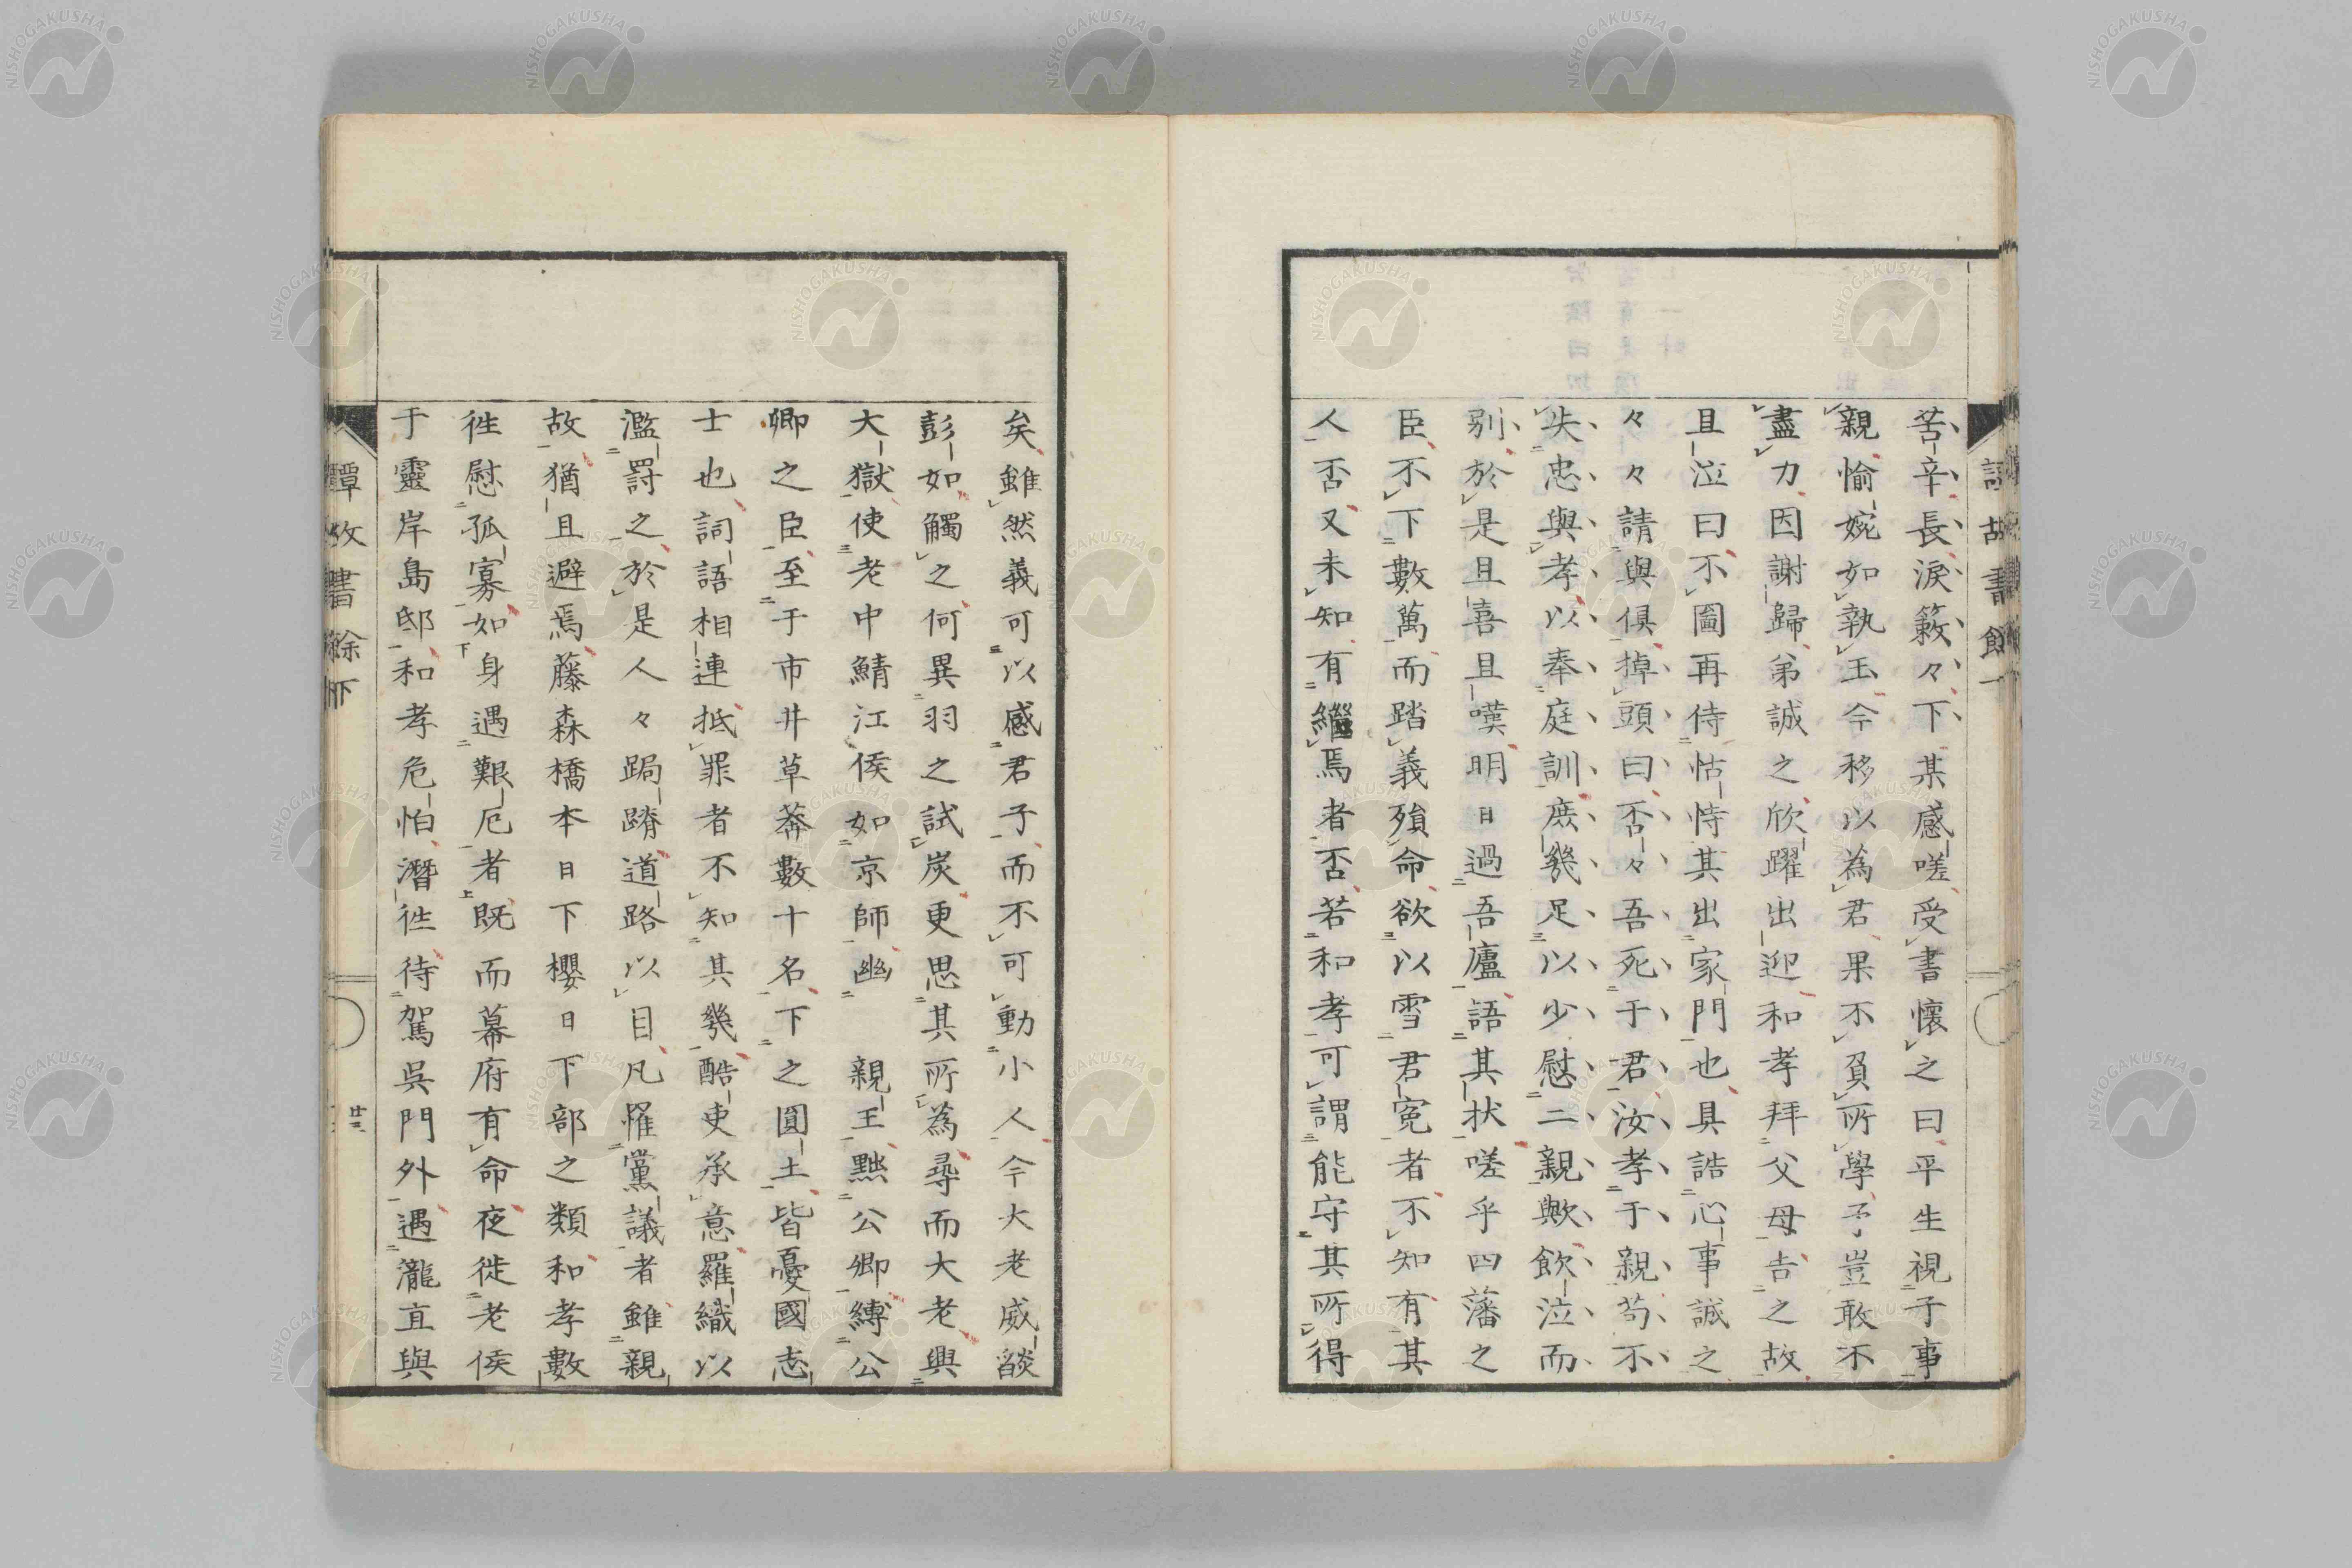 苦辛長淚簌々下某感嗟受書懷之曰平生視子事
親愉婉如執玉今移以為君果不負所學予豈敢不
盡力因謝歸弟誠之欣躍出迎和孝拜父母告之故
且泣曰不圖再侍怙恃其出家門也具誥心事誠之
々々請與俱掉頭曰否々吾死于君汝孝于親苟不
失忠與孝以奉庭訓庶幾足以少慰二親歟飲泣而
別於是且喜且嘆明日過吾廬語其狀嗟乎四藩之
臣不下數萬而踏義殞命欲以雪君冤者不知有其
人否又未知有繼焉者否若和孝可謂能守其所得
矣雖然義可以感君子而不可動小人今大老威燄
彭如觸之何異羽之試炭更思其所為尋而大老與
大獄使老中鯖江侯如京師幽親王黜公卿縛公
卿之臣至于市井草莽數十名下之圓土皆憂國志
士也詞語相連抵罪者不知其幾酷吏承意羅織以
濫罰之於是人々跼蹐道路以目凡罹黨議者雖親
故猶且避焉藤森橋本日下櫻日下部之類和孝數
徃慰孤寡如身遇艱厄者既而幕府有命夜徙老侯
于靈岸島邸和孝危怕潛徃待駕吳門外遇瀧直與
譚故書餘下
廿三
NISHOGAKUSHA